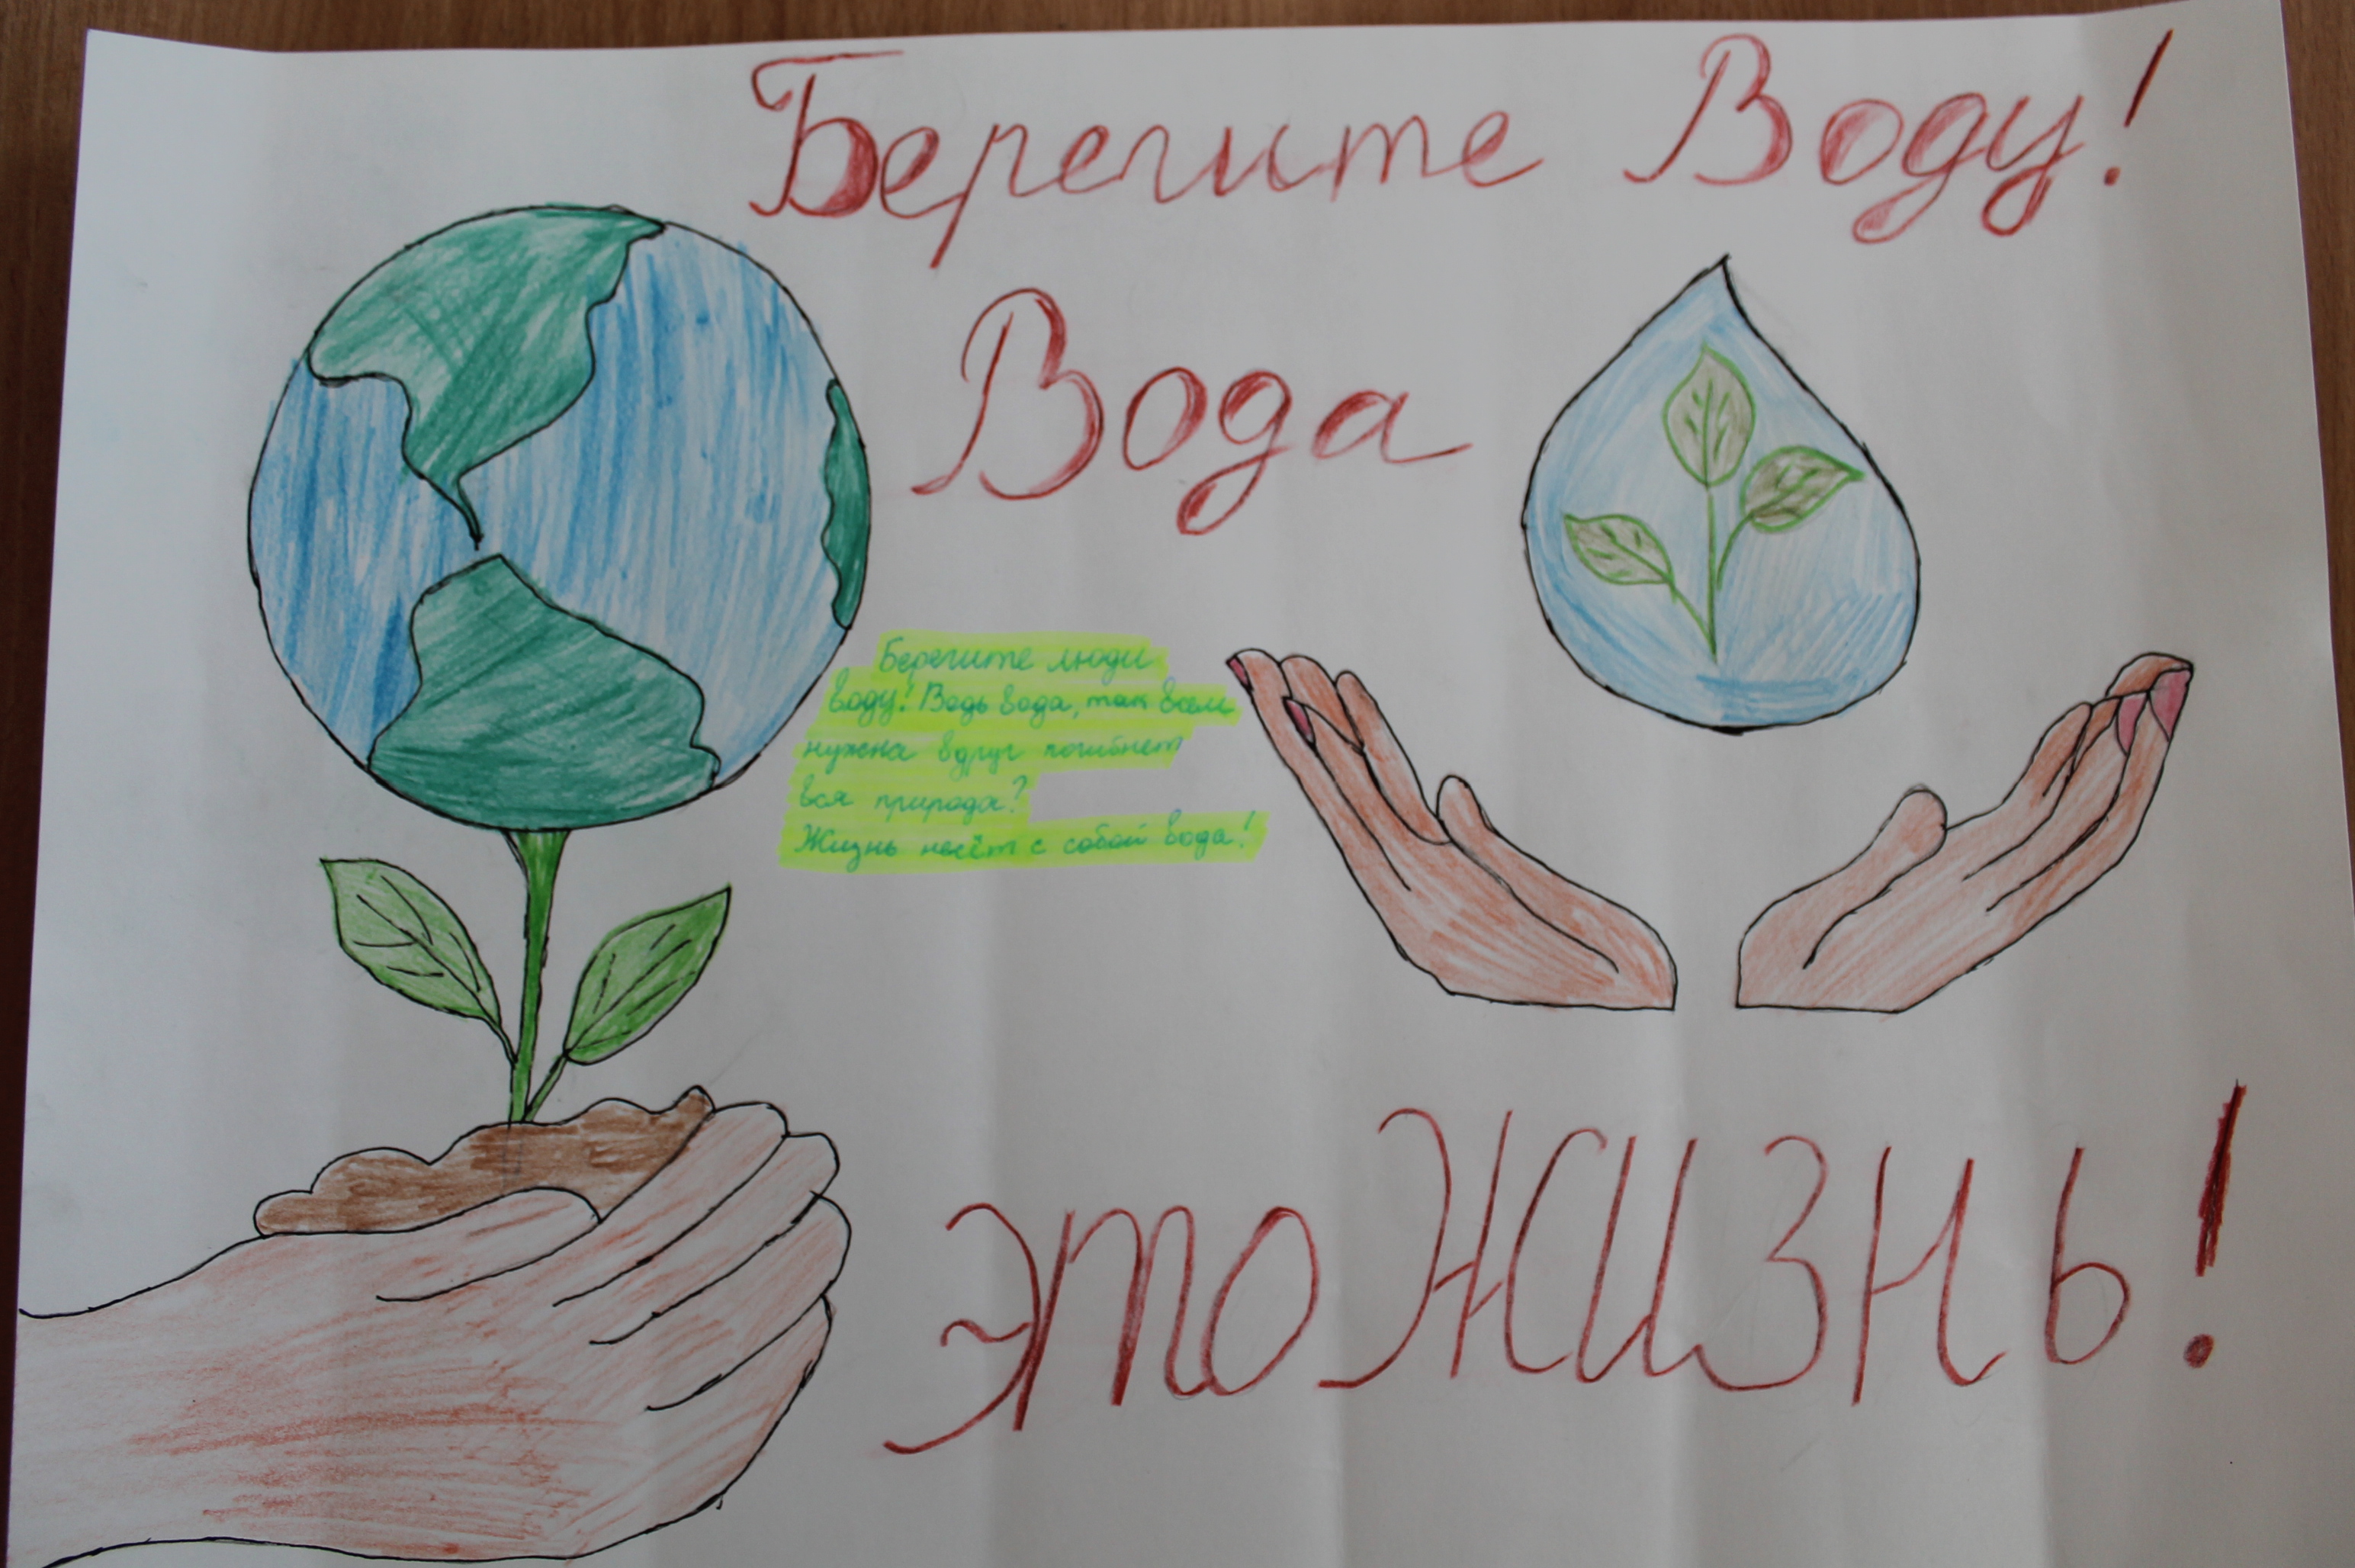 Берегите Воду!
Вода
Берегите люди
воду! Ведь вода, так всем
нужна вдруг погибнет
вся природа?
Жизнь несёт с собой вода!
это ЖИЗНЬ!